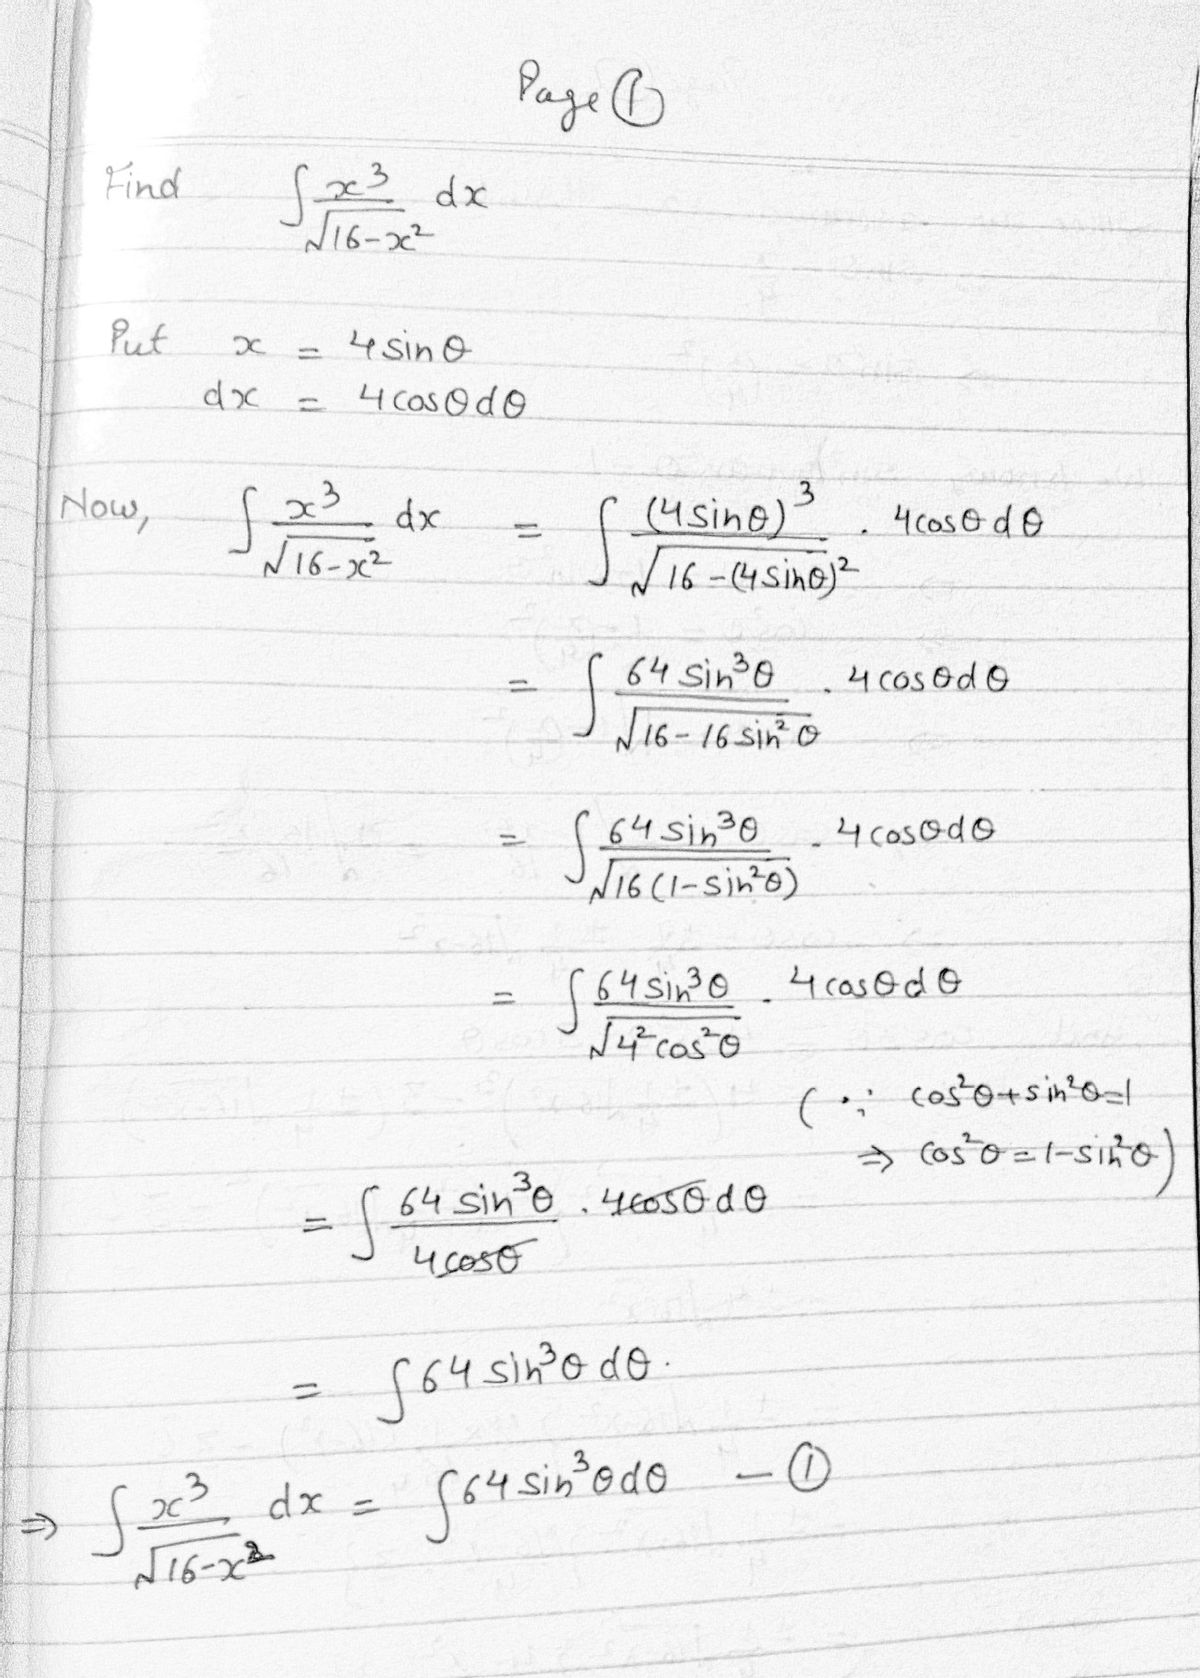 Page ①
Find ∫ x³/√(16-x²) dx
Put x = 4 sin θ
dx = 4 cos θ dθ
Now, ∫ x³/√(16-x²) dx = ∫ (4 sin θ)³/√(16-(4 sin θ)²) . 4 cos θ dθ
= ∫ 64 sin³θ/√(16-16 sin²θ) . 4 cos θ dθ
= ∫ 64 sin³θ/√(16(1-sin²θ)) . 4 cos θ dθ
= ∫ 64 sin³θ/√(4² cos²θ) . 4 cos θ dθ
(∵ cos²θ + sin²θ = 1
⇒ cos²θ = 1-sin²θ)
= ∫ 64 sin³θ/4 cos θ . 4 cos θ dθ
= ∫ 64 sin³θ dθ.
⇒ ∫ x³/√(16-x²) dx = ∫ 64 sin³θ dθ — ①